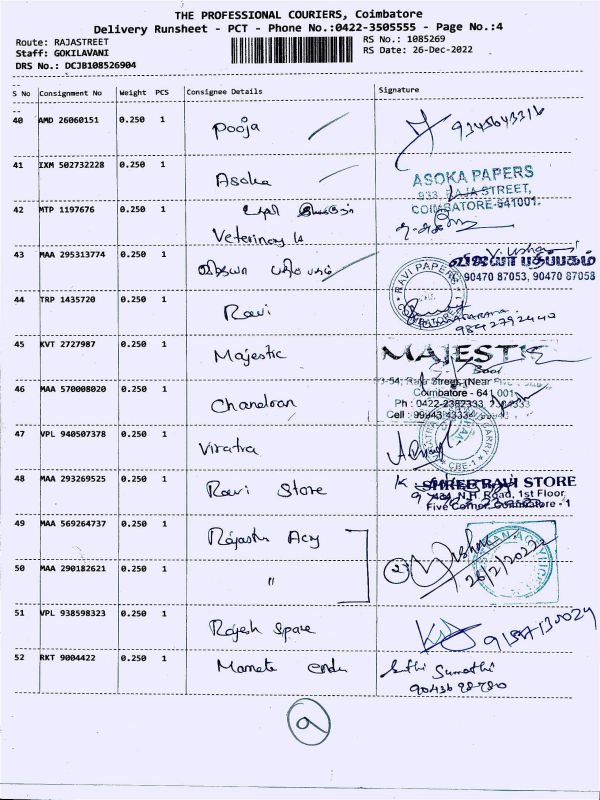 THE PROFESSIONAL COURIERS, Coimbatore
Delivery Runsheet - PCT - Phone No.:0422-3505555 - Page No.:4
Route: RAJASTREET
Staff: GOKILAVANI
DRS No.: DCJB108526904
RS No.: 1085269
RS Date: 26-Dec-2022
S No Consignment No Weight PCS Consignee Details Signature
40 AMD 26060151 0.250 1 Pooja 9345643316
41 IXM 502732228 0.250 1 Asoka
ASOKA PAPERS
933, RAJA STREET,
COIMBATORE-641001.
42 MTP 1197676 0.250 1
Veterinery
43 MAA 295313774 0.250 1 விஜயா பதிப்பகம்
விஜயா பதிப்பகம்
90470 87053, 90470 87058
44 TRP 1435720 0.250 1 Ravi
RAVI PAPERS
COIMBATORE
9842792440
45 KVT 2727987 0.250 1 Majestic
MAJESTIC
46 MAA 570008020 0.250 1 Chandran
Coimbatore - 641 001
Ph : 0422-2382333
47 VPL 940507378 0.250 1 Viratra
CBE-1
48 MAA 293269525 0.250 1 Ravi Store
SHREE RAVI STORE
484, N.H. Road, 1st Floor
Five Corner, Coimbatore - 1
49 MAA 569264737 0.250 1 Rajasthn Acy
50 MAA 290182621 0.250 1 "
2
51 VPL 938598323 0.250 1 Rajesh Spare
52 RKT 9004422 0.250 1
Sumathi
9